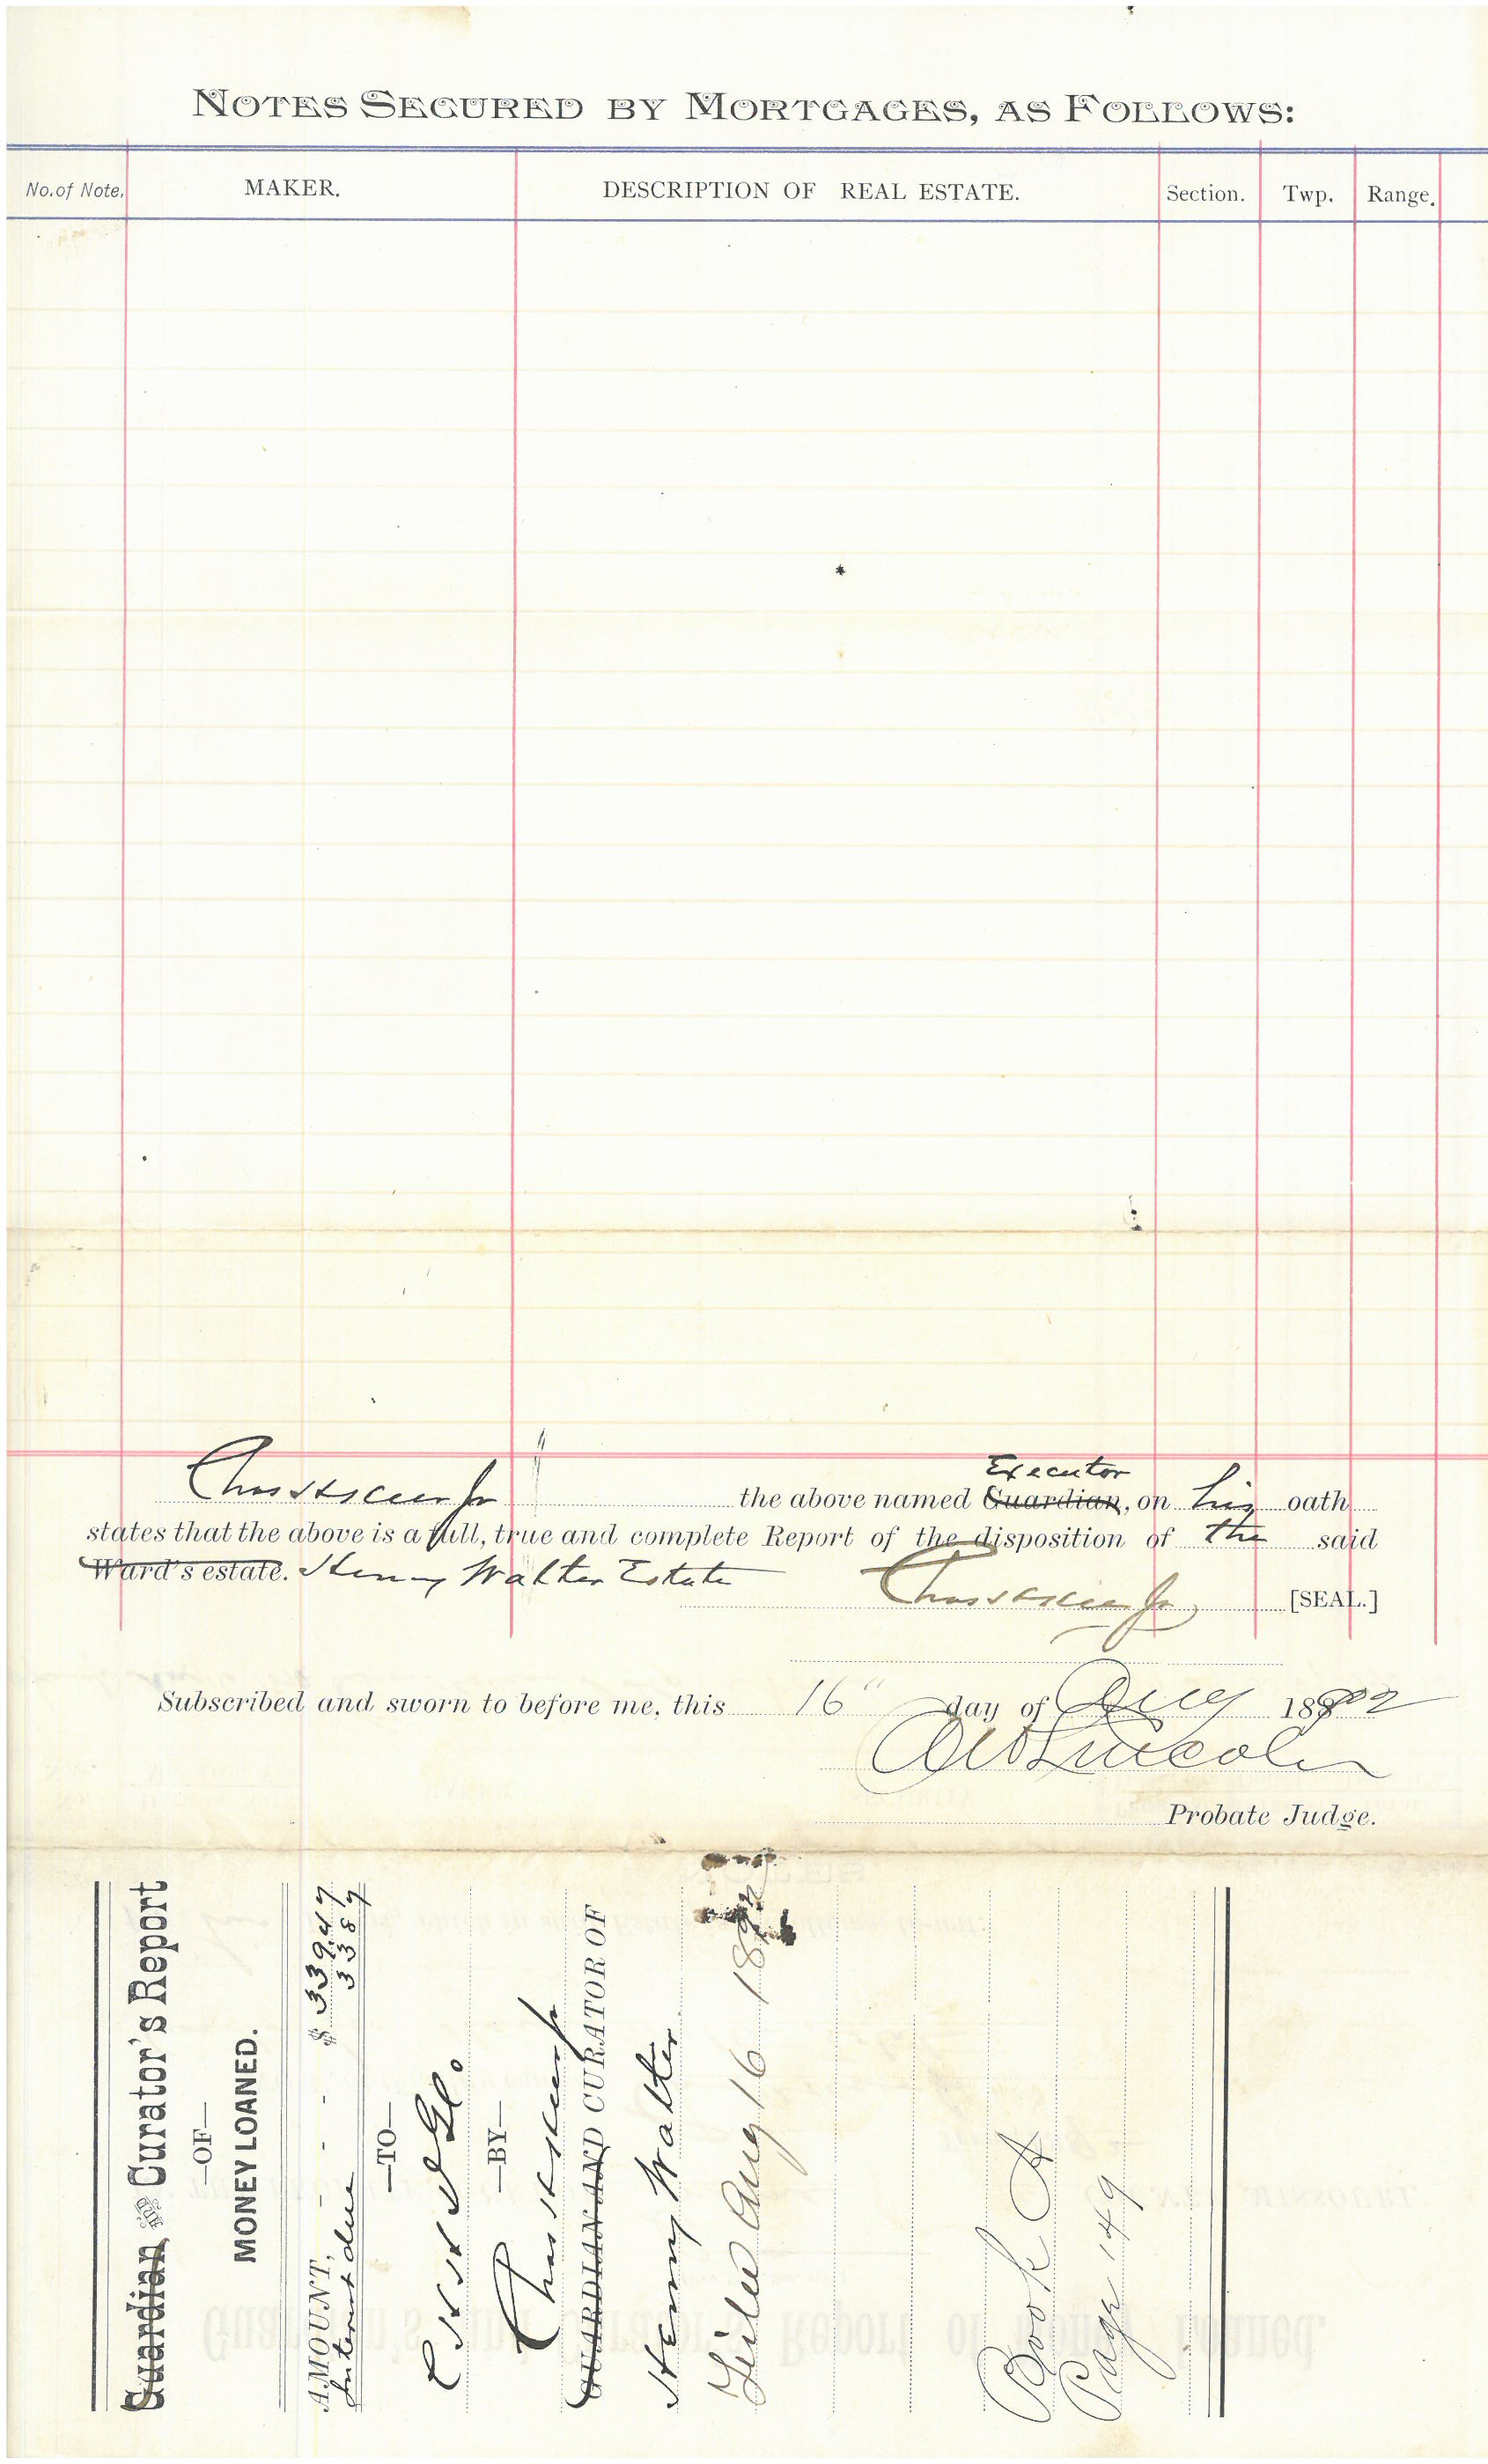 NOTES SECURED BY MORTGAGES, AS FOLLOWS:
No. of Note. MAKER. DESCRIPTION OF REAL ESTATE. Section. Twp. Range.
Executor
the above named Guardian, on his oath
states that the above is a full, true and complete Report of the disposition of the said
Ward's estate. Henry Walter Estate
[SEAL.]
Subscribed and sworn to before me, this 16" day of Aug 1902
Lincoln
Probate Judge.
Guardian, and Curator's Report
—OF—
MONEY LOANED.
AMOUNT, - - - $ 33947
Interest due 3387
—TO—
—BY—
GUARDIAN AND CURATOR OF
Henry Walter
Filed Aug 16 18
Book A
Page 149